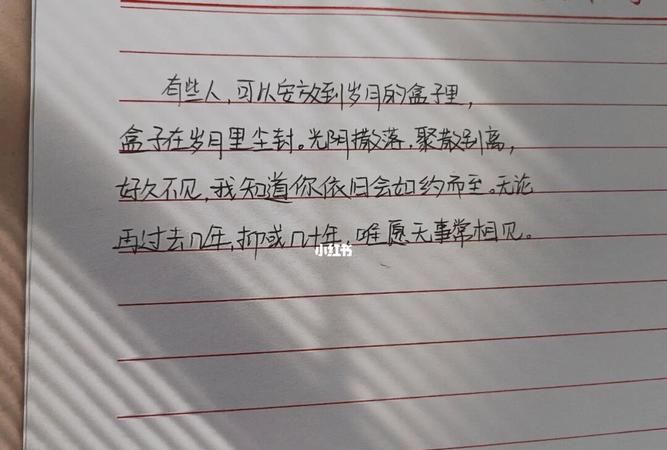 有些人,可以安放到岁月的盒子里,
盒子在岁月里尘封。光阴撒落,聚散别离,
好久不见,我知道你依旧会如约而至。无论
再过去几年,抑或几十年,唯愿无事常相见。
小红书